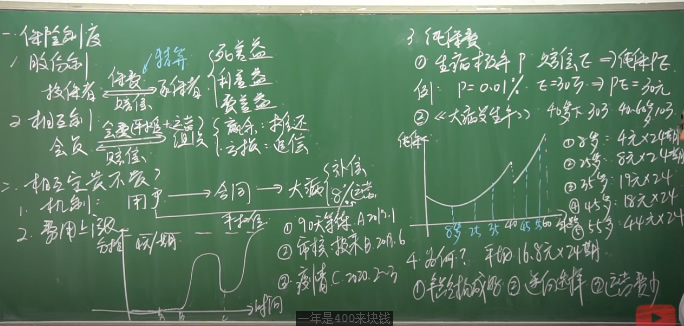 一、保险制度
1. 股份制
精算
投保者 保费 赔偿 承保者
死差益
利差益
费差益
2. 相互制
会员 会费 赔偿
盈余：
亏损：
二、相互宝贵不贵？
1. 机制：用户 → 合同 → 大病
补偿
8%
2. 费用上涨
分摊
元/期
时间
A B C
① 90天等待 A 2019.1
② 审核技术 B 2019.6
③ 疫情 C 2020.2~3
3. 纯保费
① 生病概率 P 赔偿 E ⇒ 纯保 PE
例: P=0.01% E=30万 ⇒ PE=30元
② 《大病发生率》 40岁下30万 40-60岁10万
纯保
8岁 25 35 40 45 55 60
① 8岁: 4元×24期
② 25岁: 8元×24期
③ 35岁: 17元×24
④ 45岁: 18元×24
⑤ 55岁: 44元×24
4. 为何? 平均16.8元×24期
① 年龄结构 ② 逆向选择 ③ 运营费少
一年是400来块钱